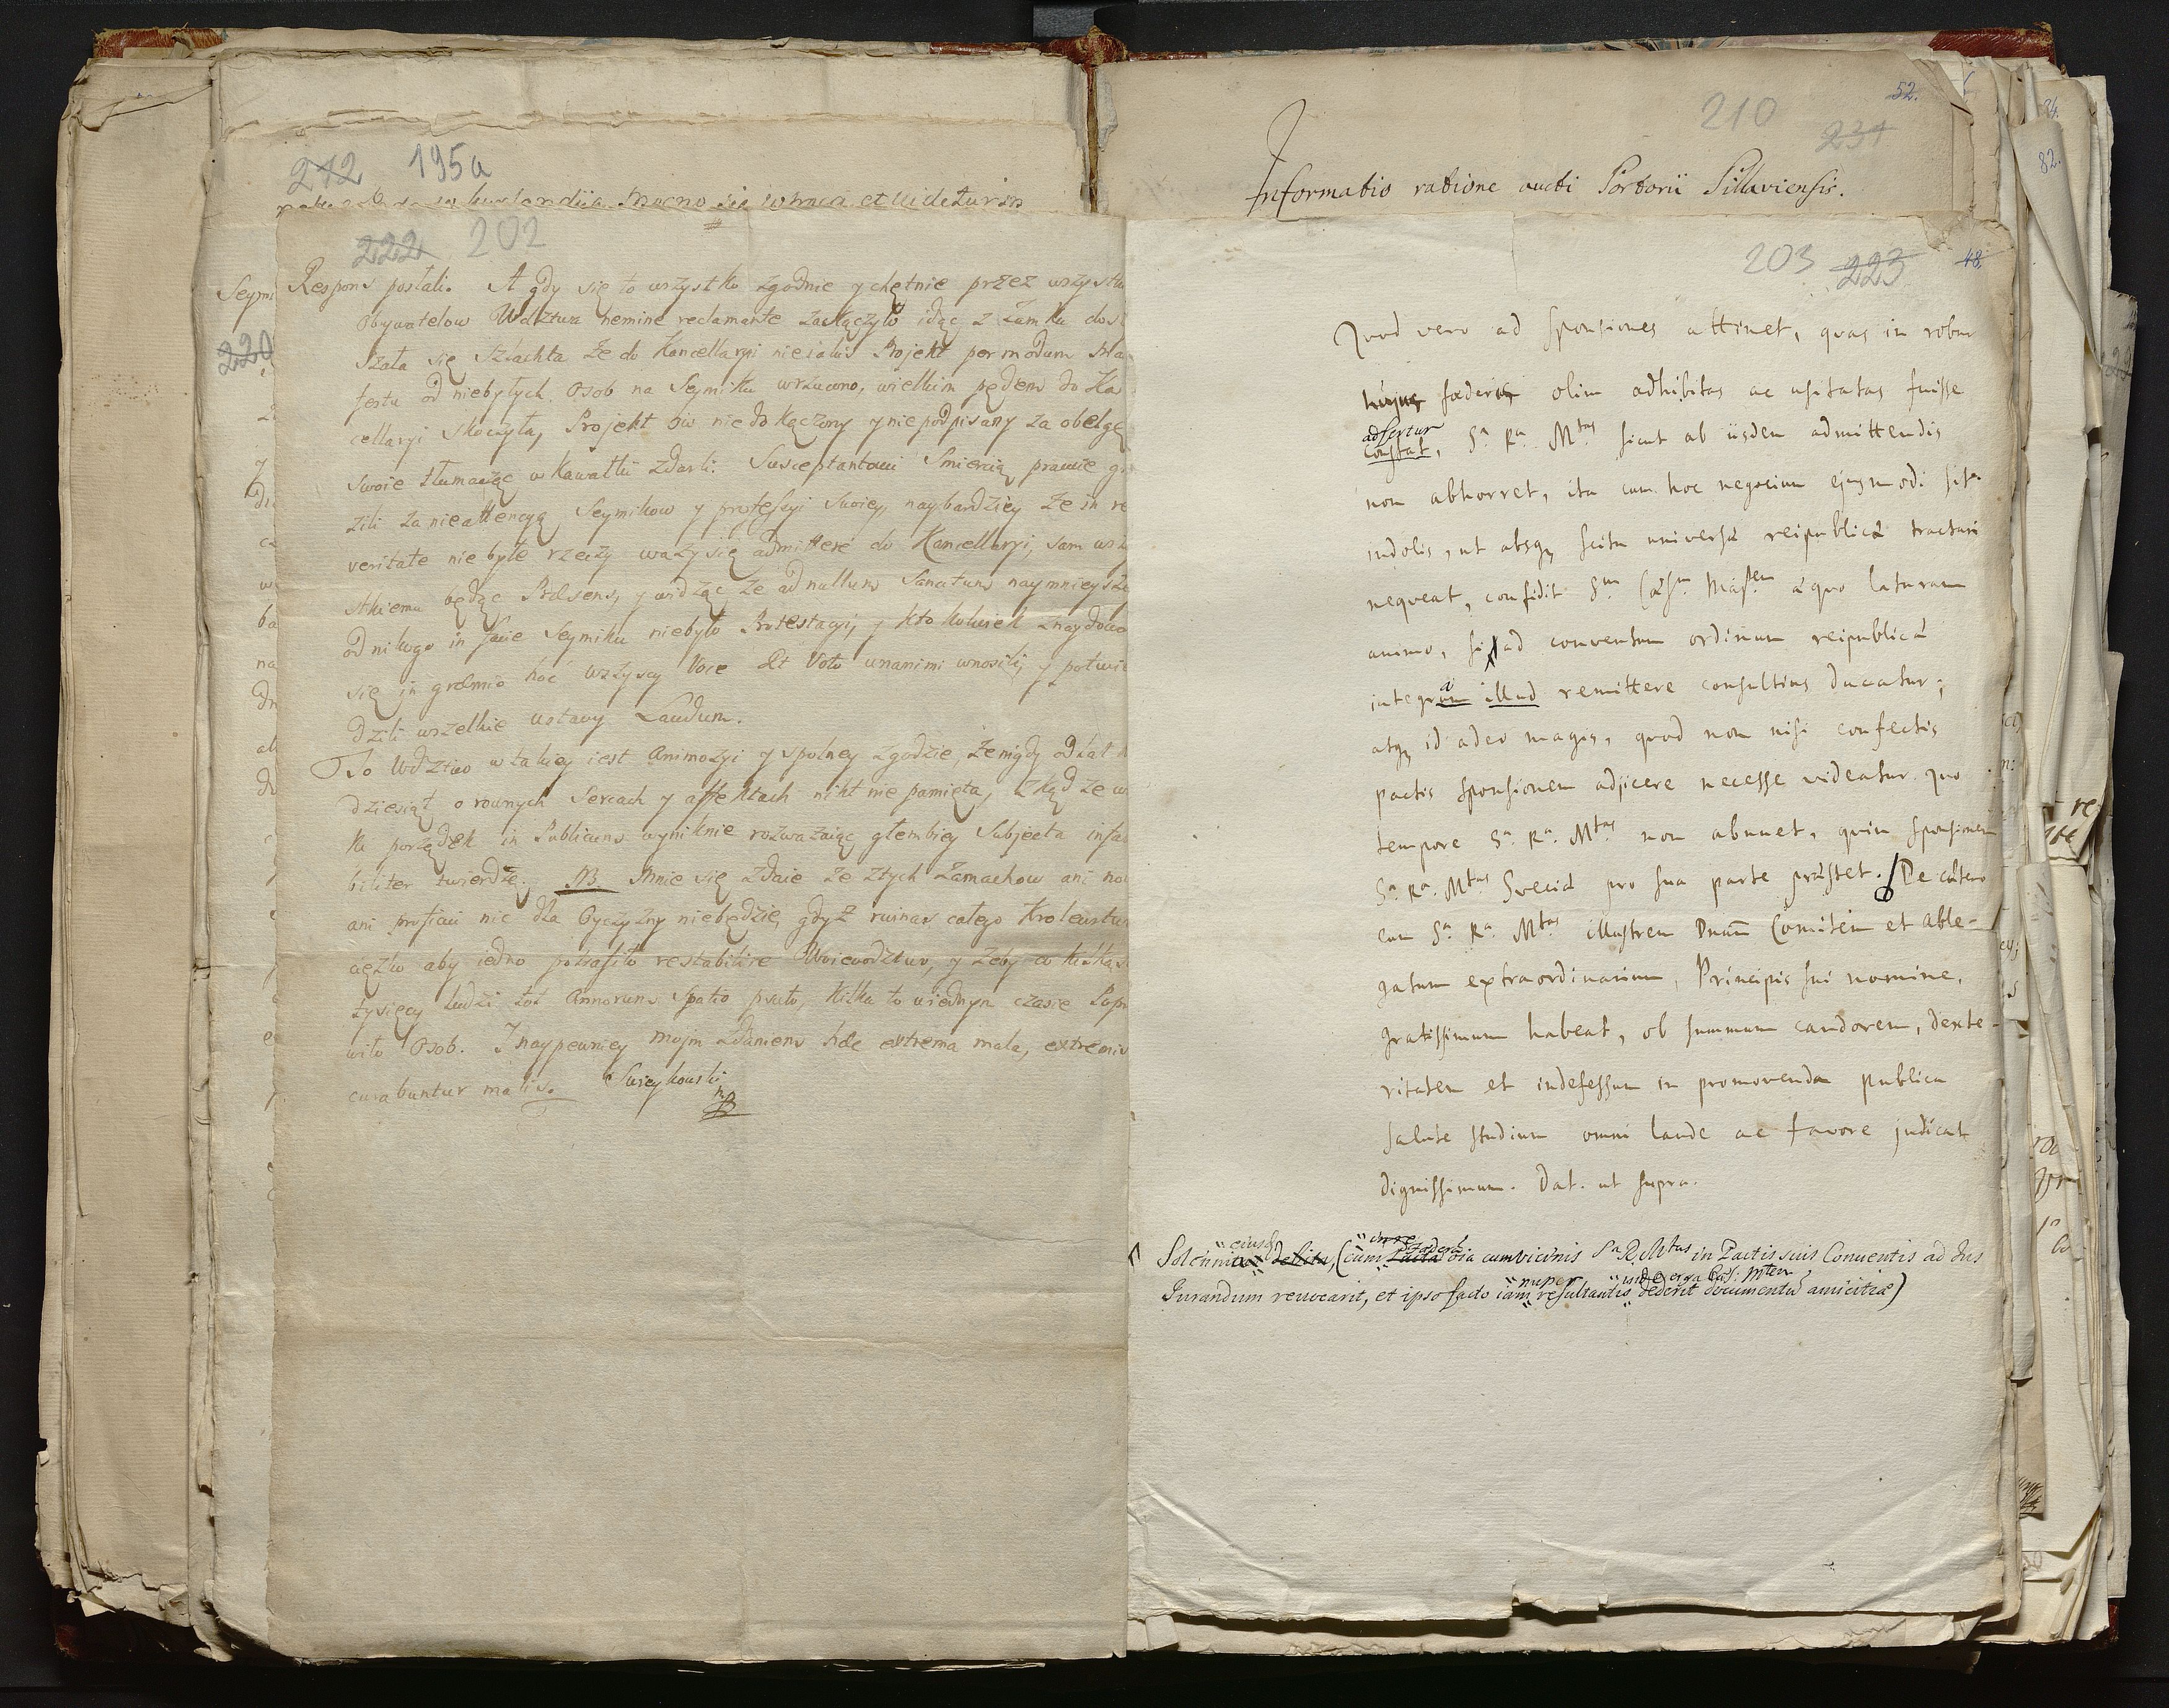 212 195a
222 202
Respons posłali. A gdy się to wszystko zgodnie y chętnie przez wszystk
Obywatelow Wdztwa nemine reclamante zakączyło idąc z Zamku dos
szała się Szlachta że do Kancellaryi nieiakiś Projekt per modum Ma
festu od niebyłych Osob na Seymiku wrzucono, wielkim pędem do Ka
cellaryi skoczyła, Projekt ow niedokączony y niepodpisany za obelgę
swoie tłumacząc w kawałki zdarli. Susceptantowi Smiercią prawie gr
zili za nieattencyą Seymikow y protessyi swoiey, naybardziey że in re
veritate niebyłe rzeczy waży się admittere do Kancellaryi, sam wsz
stkiemu będąc Præsens, y widząc że ad nullum Senatum naymnieysze
od nikogo in facie Seymiku niebyło Protestacyi, y kto kolwiek znaydowa
się in græmio hoc wszyscy Voce et Voto unanimi wnosili, y potwie
dzili wszelkie ustawy Laudum.
To Wdztwo w takiey iest Animozyi y spolney zgodzie, że nigdy od lat
dziesiąt o rownych sercach y affektach nikt nie pamięta, zkąd że w
ki porządek in Publicum wyniknie rozważaiąc głembiey Subjecta infa
biliter twierdzę. NB. Mnie się zdaie że z tych Zamachow ani no
ani proficui nic dla Oyczyzny niebędzie, gdyż ruinam całego Krolewstw
ciężko aby iedno potrafiło restabilire Woiewodztwo, y żeby co kilka
tysięcy ludzi tot Annorum spatio psuło, kilka to w iednym czasie Popr
wiło Osob. I naypewniey moim zdaniem hæc extrema mala, extremis
curabuntur malis. Swieykowski
mp
52.
210
231
Informatio ratione aucti Portorii Pillaviensis.
203 223 48.
Quod vero ad sponsiones attinet, quas in robur
hujus foederis olim adhibitas ac usitatas fuisse
adsertur
constat, Sa Ra Mtas sicut ab iisdem admittendis
non abhorret, ita cum hoc negocium ejusmodi sit
indolis, ut absq scitu universæ reipublicæ tractari
nequeat, confidit Sm Cæsm Majtem æquo laturam
animo, si ad conventum ordinum reipublicæ
integrum illud remittere consultius ducatur;
atq id adeo magis, quod non nisi confectis
pactis sponsionem adjicere necesse videatur. Quo
tempore Sa Ra Mtas non abnuet, quin sponsionem
Sa Ra Mtas Sveciæ pro sua parte præstet. De cætero
cum Sa Ra Mtas illustrem Dnum Comitem et able-
gatum extraordinarium, Principis sui nomine,
gratissimum habeat, ob summum candorem, dexte-
ritatem et indefessum in promovenda publica
salute studium omni laude ac favore judicat
dignissimum. Dat. ut supra.
Solemnia debita, (cum Pacta oia cum vicinis Sa R. Mtas in Pactis suis Conventis ad Jus
nuper erga Cæs: Mtem
Jurandum revocarit, et ipso facto iam resultantis dederit documentu amicitiæ)